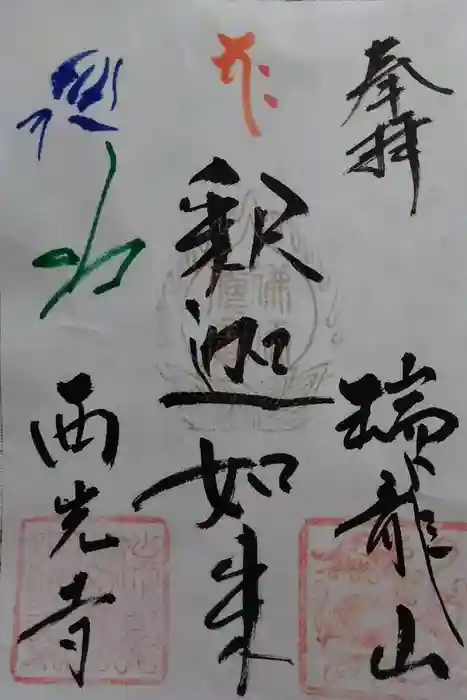 奉拝
瑞龍山
釈迦如来
西光寺